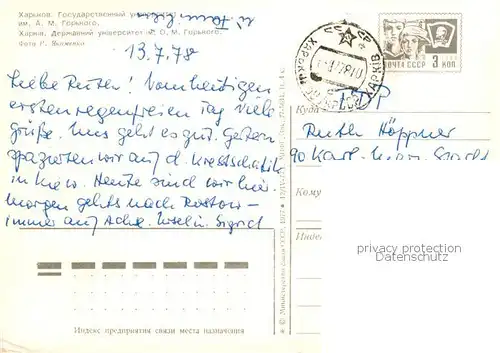 Харьков. Государственный
им. А. М. Горького.
Харків. Державний університет ім. О. М. Горького.
Фото Р. Якименко
13.7.78
Liebe Ruth! Vom heutigen
ersten regenfreien Tag viele
Grüße. Uns geht es gut. Gestern
spazierten wir auf d. Krestschatik
in Kiew. Heute sind wir hier.
Morgen gehts nach Rostow –
immer auf Achse. Sigrid
ПОЧТА СССР 3 КОП.
ХАРКІВ
DDR
Куда
Ruth Höppner
90 Karl-Marx-Stadt
Кому
Индекс
privacy protection
Индекс предприятия связи места назначения
© Министерство связи СССР, 1977